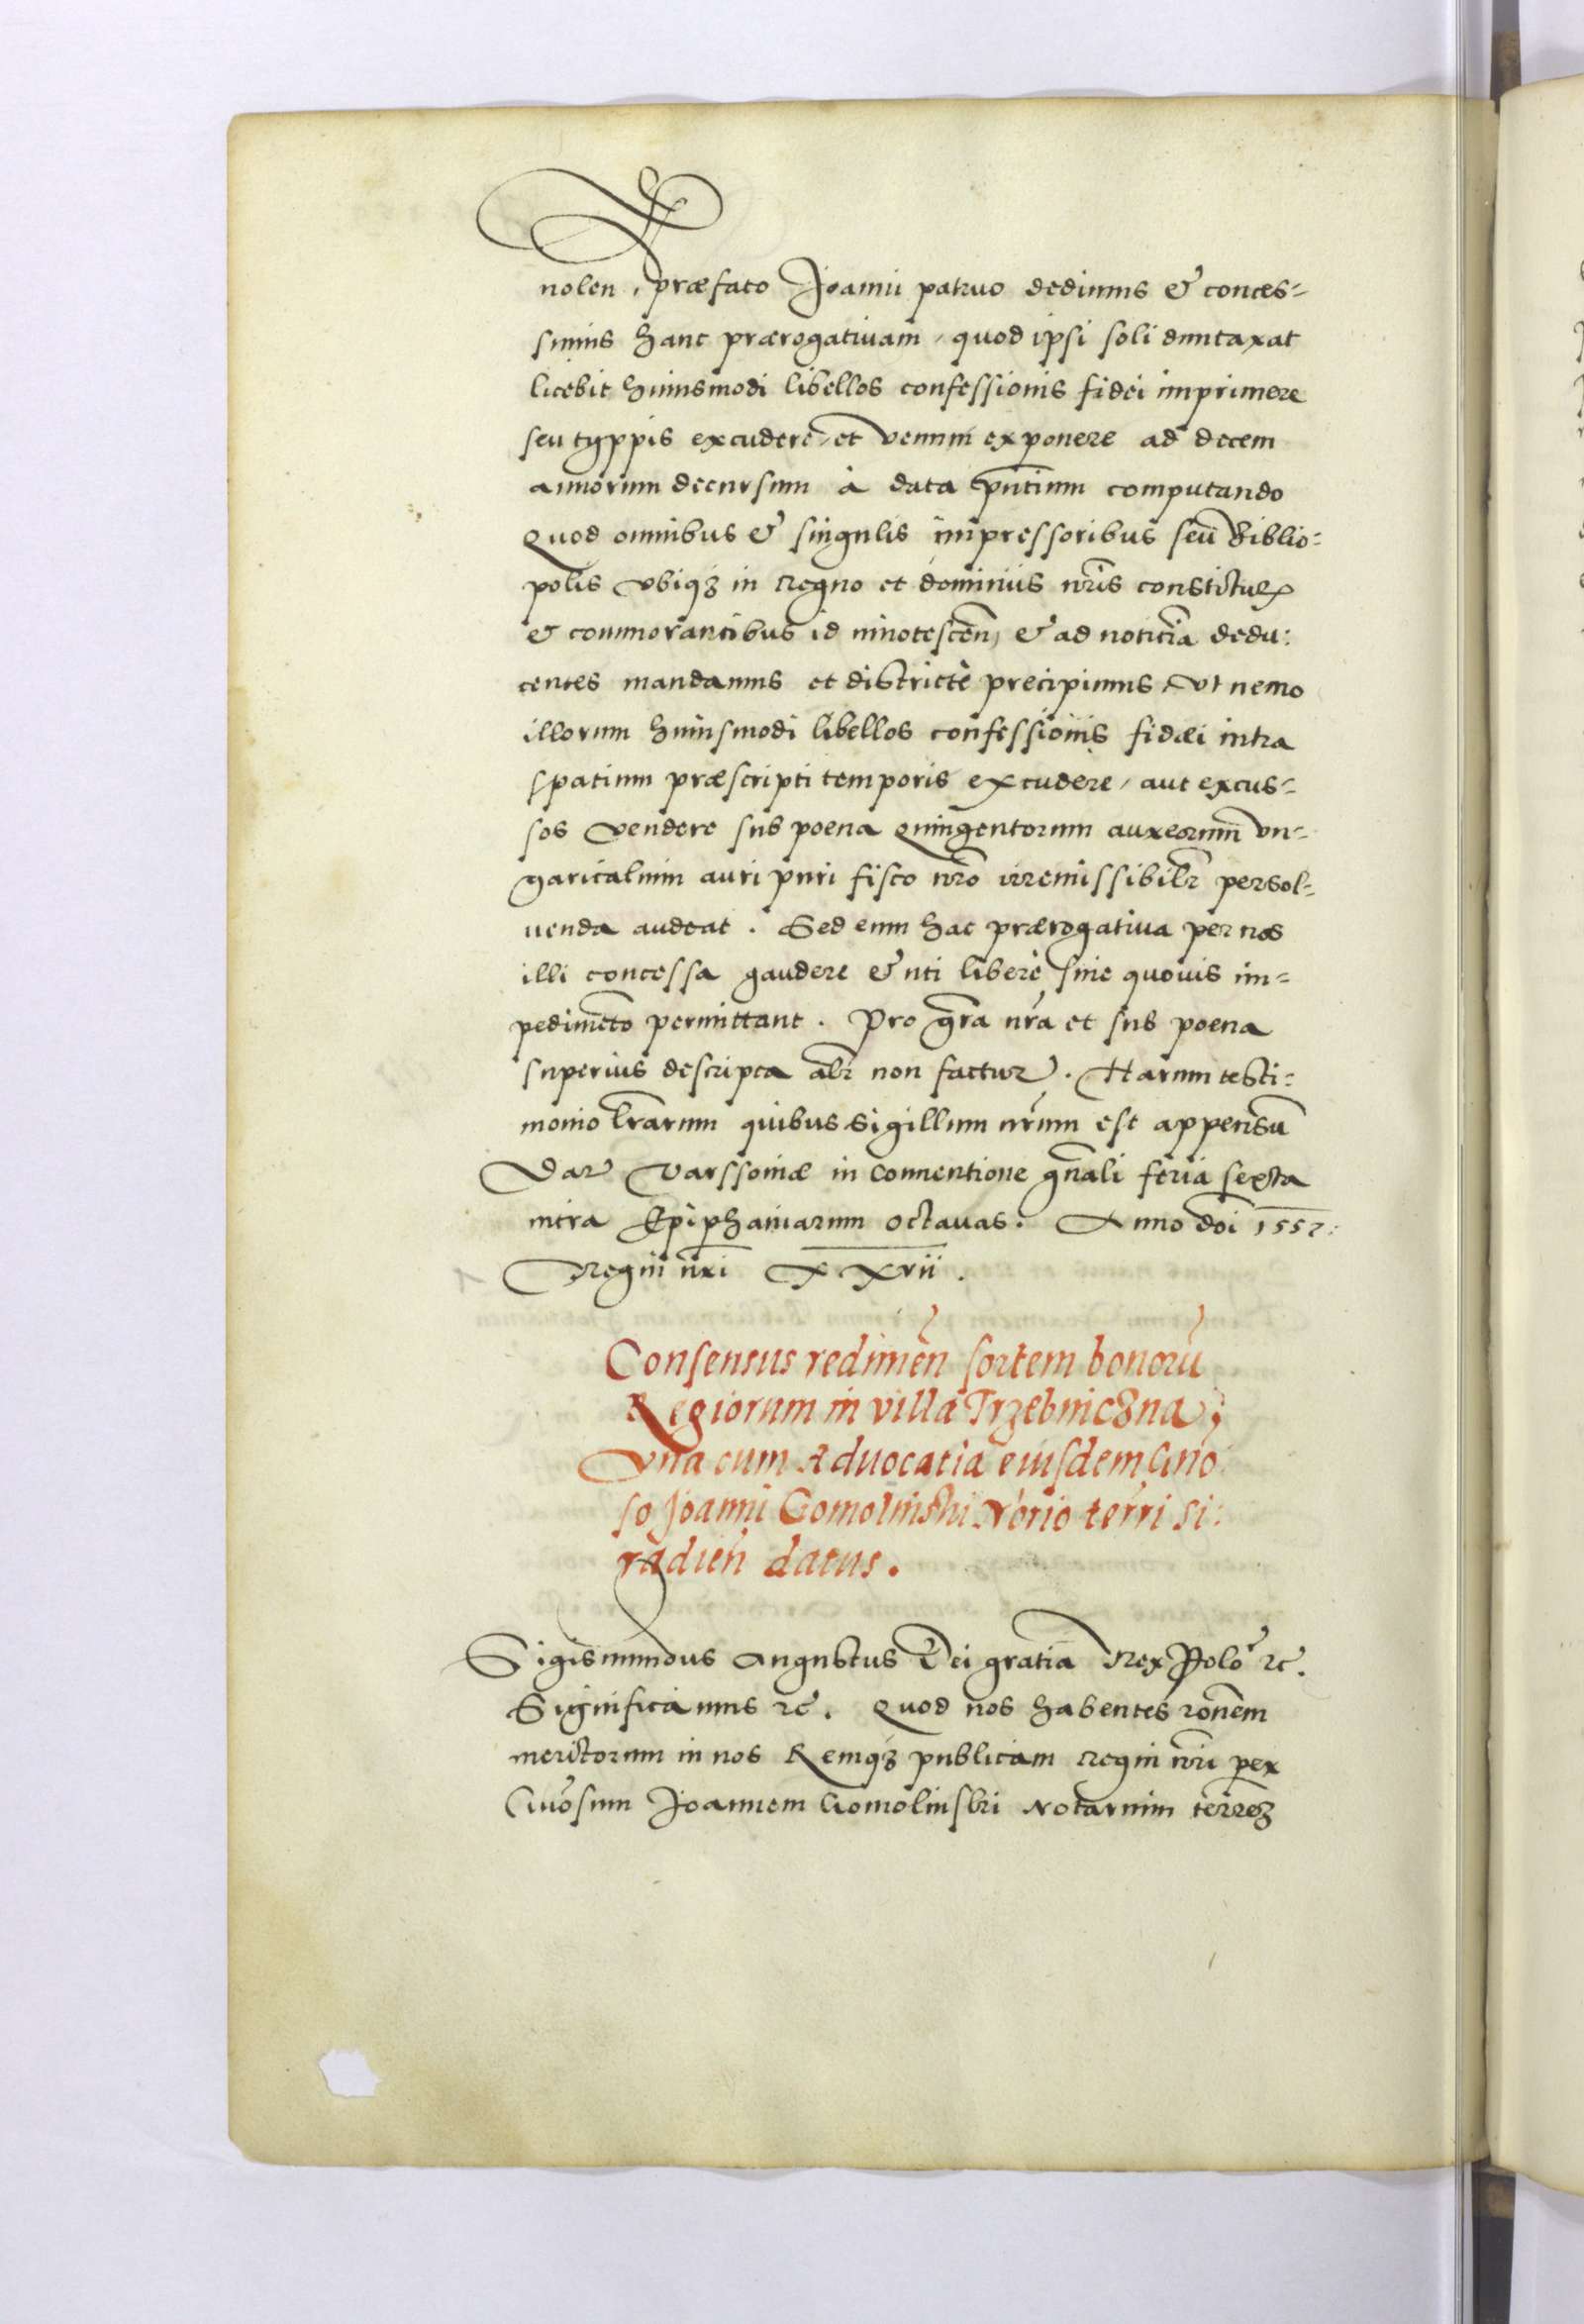 nolen, præfato Joanni patruo dedimus & conces-
simus hanc prærogativam, quod ipsi soli duntaxat
licebit huiusmodi libellos confessionis fidei imprimere
seu typpis excudere, et venum exponere ad decem
annorum decursum à data pñtium computando
Quod omnibus & singulis impressoribus seu Biblio:
polis vbiqȝ in Regno et dominiis nr̃is constitutꝝ
& commorantibus id innotescen̄, & ad noticiã dedu:
centes mandamus et districtè precipimus, Vt nemo
illorum huiusmodi libellos confessionis fidæi intra
spatium præscripti temporis excudere, aut excus-
sos vendere sub poena quingentorum aureorum vn-
garicalium auri puri fisco nr̃o irremissibilr̃ persol-
uenda audeat. Sed eum hac prærogatiua per nos
illi concessa gaudere & uti liberè sine quouis im-
pedimẽto permittant. Pro gr̃a nr̃a et sub poena
superius descripta alr̃ non factur̃. Harum testi:
monio lr̃arum quibus sigillum nr̃um est appensũ
Dat̃ Varssoviæ in Conuentione gñali feria sexta
intra Epiphaniarum octauas. Anno dõi 1557:
Regni nr̃i XXVII.
Consensus redimẽn sortem bonorũ
Regiorum in villa Trzebniczna;
Vna cum Aduocatia eiusdem Gno
so Joanni Gomolinski Nõrio terri Si:
radieñ datus.
Sigismundus Augustus Dei gratia Rex Poloˀ ꝛc.
Significamus ꝛc. Quod nos habentes rõnem
meritorum in nos Remqȝ publicam Regni nr̃i per
Gnõsum Joannem Gomolinski Notarium terreȝ